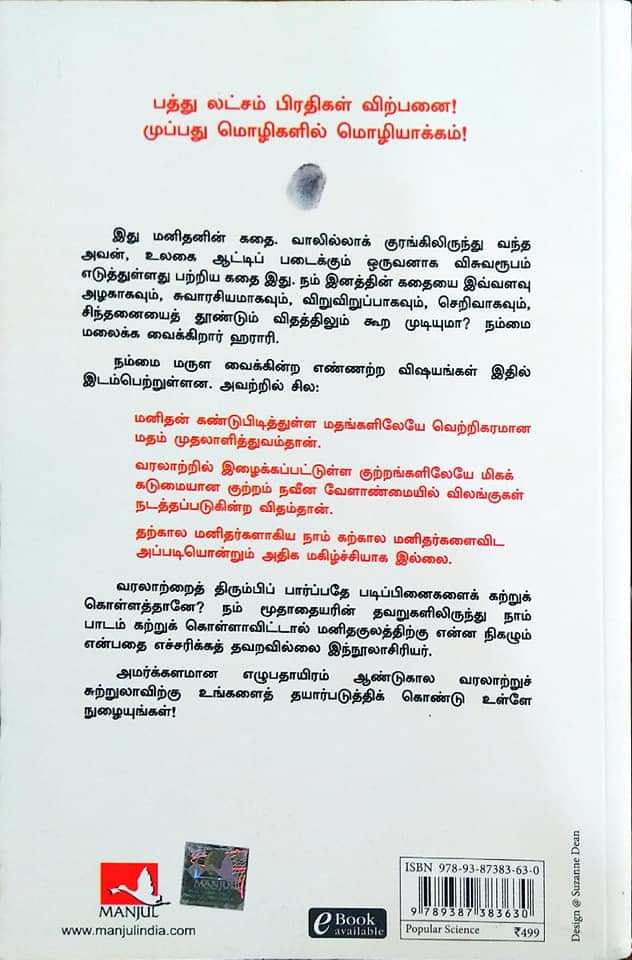 பத்து லட்சம் பிரதிகள் விற்பனை!
முப்பது மொழிகளில் மொழியாக்கம்!
இது மனிதனின் கதை. வாலில்லாக் குரங்கிலிருந்து வந்த
அவன், உலகை ஆட்டிப் படைக்கும் ஒருவனாக விசுவரூபம்
எடுத்துள்ளது பற்றிய கதை இது. நம் இனத்தின் கதையை இவ்வளவு
அழகாகவும், சுவாரசியமாகவும், விறுவிறுப்பாகவும், செறிவாகவும்,
சிந்தனையைத் தூண்டும் விதத்திலும் கூற முடியுமா? நம்மை
மலைக்க வைக்கிறார் ஹராரி.
நம்மை மருள வைக்கின்ற எண்ணற்ற விஷயங்கள் இதில்
இடம்பெற்றுள்ளன. அவற்றில் சில:
மனிதன் கண்டுபிடித்துள்ள மதங்களிலேயே வெற்றிகரமான
மதம் முதலாளித்துவம்தான்.
வரலாற்றில் இழைக்கப்பட்டுள்ள குற்றங்களிலேயே மிகக்
கடுமையான குற்றம் நவீன வேளாண்மையில் விலங்குகள்
நடத்தப்படுகின்ற விதம்தான்.
தற்கால மனிதர்களாகிய நாம் கற்கால மனிதர்களைவிட
அப்படியொன்றும் அதிக மகிழ்ச்சியாக இல்லை.
வரலாற்றைத் திரும்பிப் பார்ப்பதே படிப்பினைகளைக் கற்றுக்
கொள்ளத்தானே? நம் மூதாதையரின் தவறுகளிலிருந்து நாம்
பாடம் கற்றுக் கொள்ளாவிட்டால் மனிதகுலத்திற்கு என்ன நிகழும்
என்பதை எச்சரிக்கத் தவறவில்லை இந்நூலாசிரியர்.
அமர்க்களமான எழுபதாயிரம் ஆண்டுகால வரலாற்றுச்
சுற்றுலாவிற்கு உங்களைத் தயார்படுத்திக் கொண்டு உள்ளே
நுழையுங்கள்!
MANJUL
www.manjulindia.com
MANJUL
eBook
available
ISBN 978-93-87383-63-0
9 789387 383630
Popular Science ₹499
Design @ Suzanne Dean